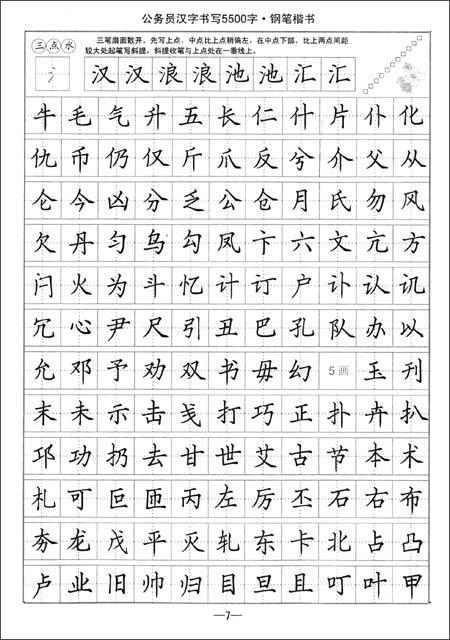 公务员汉字书写5500字·钢笔楷书
三点水
三笔扇面散开，先写上点，中点比上点稍偏左，在中点下部、比上两点间距
较大处起笔写斜提，斜提收笔与上点处在一垂线上。
氵 汉 汉 浪 浪 池 池 汇 汇
牛 毛 气 升 五 长 仁 什 片 仆 化
仇 币 仍 仅 斤 爪 反 兮 介 父 从
仑 今 凶 分 乏 公 仓 月 氏 勿 风
欠 丹 匀 乌 勾 凤 卞 六 文 亢 方
闩 火 为 斗 忆 计 订 户 讣 认 讥
冗 心 尹 尺 引 丑 巴 孔 队 办 以
允 邓 予 劝 双 书 毋 幻 5画 玉 刊
末 未 示 击 戋 打 巧 正 扑 卉 扒
邛 功 扔 去 甘 世 艾 古 节 本 术
札 可 叵 匝 丙 左 厉 丕 石 右 布
夯 龙 戊 平 灭 轧 东 卡 北 占 凸
卢 业 旧 帅 归 目 旦 且 叮 叶 甲
—7—